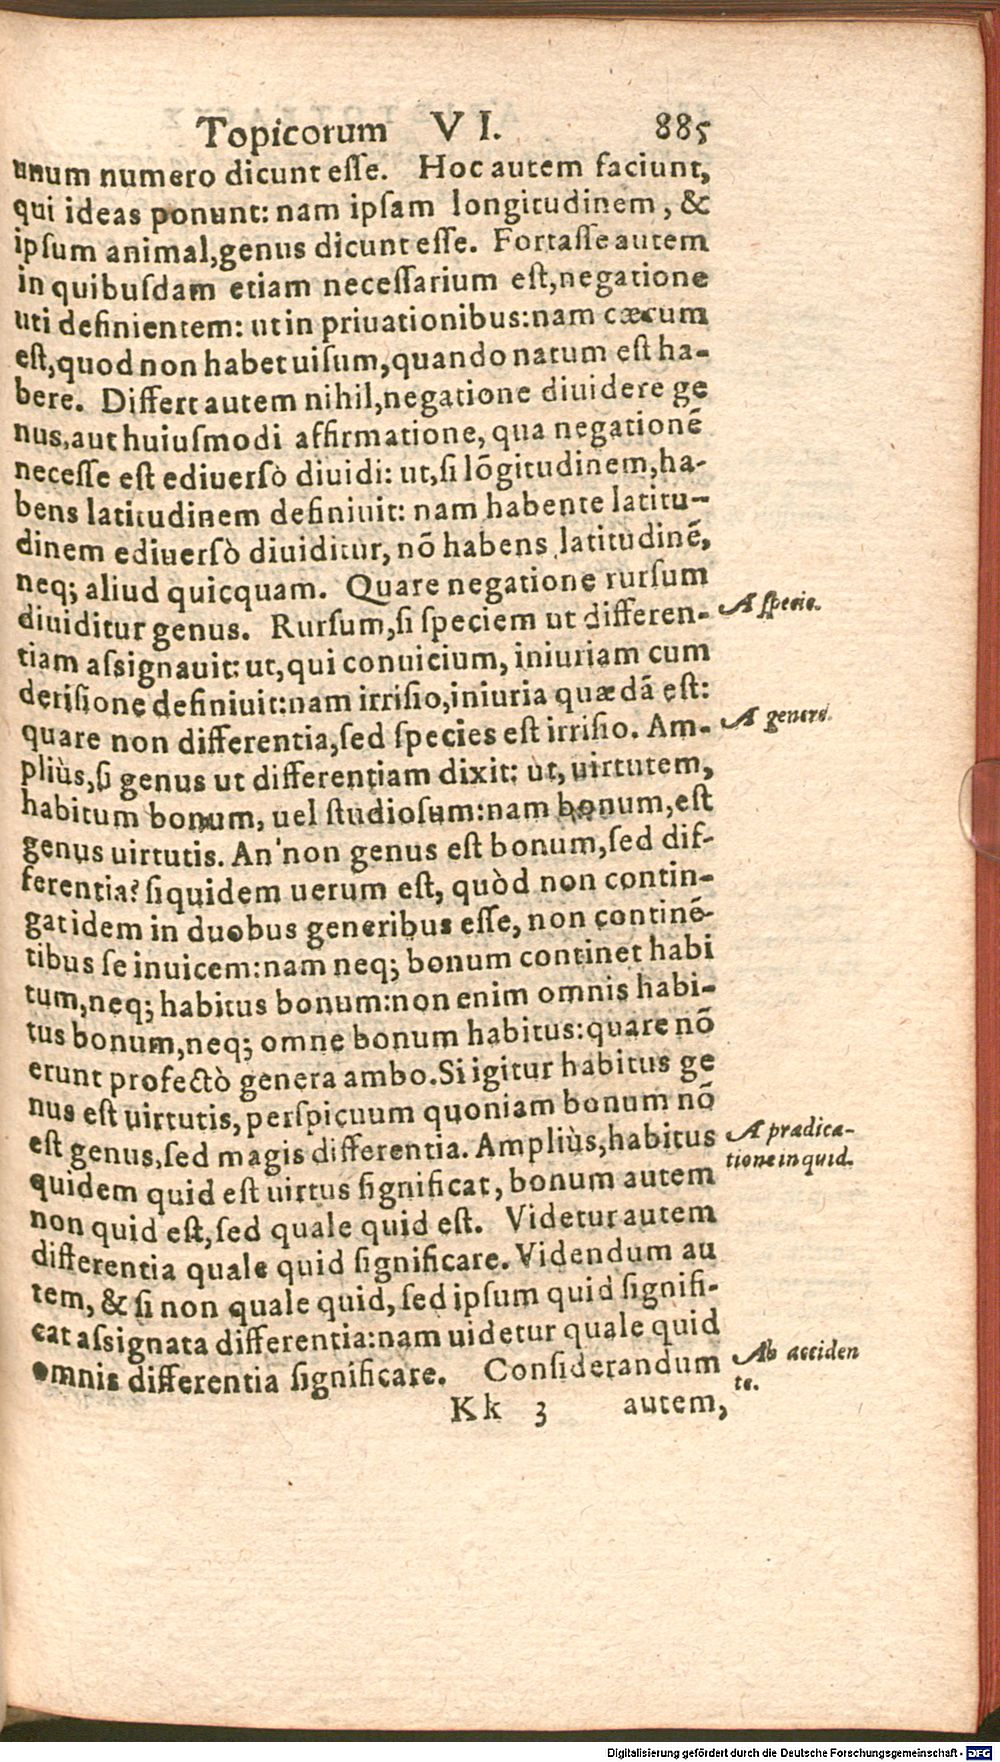 Topicorum VI. 885
unum numero dicunt esse. Hoc autem faciunt,
qui ideas ponunt: nam ipsam longitudinem, &
ipsum animal, genus dicunt esse. Fortasse autem
in quibusdam etiam necessarium est, negatione
uti definientem: ut in priuationibus: nam cæcum
est, quod non habet uisum, quando natum est ha-
bere. Differt autem nihil, negatione diuidere ge
nus, aut huiusmodi affirmatione, qua negationē
necesse est ediuersò diuidi: ut, si lōgitudinem, ha-
bens latitudinem definiuit: nam habente latitu-
dinem ediuersò diuiditur, nō habens latitudinē,
neq; aliud quicquam. Quare negatione rursum
diuiditur genus. Rursum, si speciem ut differen-
A specie.
tiam assignauit: ut, qui conuicium, iniuriam cum
derisione definiuit: nam irrisio, iniuria quædā est:
quare non differentia, sed species est irrisio. Am-
A genere.
pliùs, si genus ut differentiam dixit: ut, uirtutem,
habitum bonum, uel studiosum: nam bonum, est
genus uirtutis. An non genus est bonum, sed dif-
ferentia? siquidem uerum est, quòd non contin-
gat idem in duobus generibus esse, non continē-
tibus se inuicem: nam neq; bonum continet habi
tum, neq; habitus bonum: non enim omnis habi-
tus bonum, neq; omne bonum habitus: quare nō
erunt profectò genera ambo. Si igitur habitus ge
nus est uirtutis, perspicuum quoniam bonum nō
est genus, sed magis differentia. Ampliùs, habitus
A prædica-
tione in quid.
quidem quid est uirtus significat, bonum autem
non quid est, sed quale quid est. Videtur autem
differentia quale quid significare. Videndum au
tem, & si non quale quid, sed ipsum quid signifi-
cat assignata differentia: nam uidetur quale quid
omnis differentia significare. Considerandum
Ab acciden
te.
Kk 3 autem,
Digitalisierung gefördert durch die Deutsche Forschungsgemeinschaft - DFG